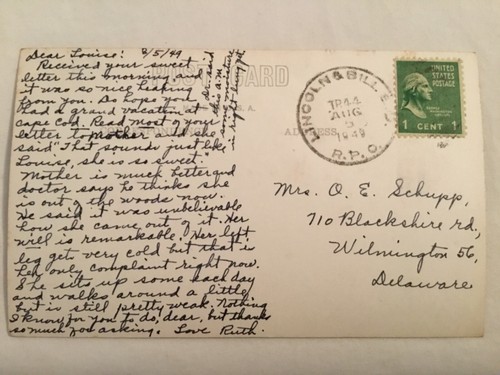 Dear Louise: 8/5/49
Received your sweet
letter this morning and
it was so nice hearing
from you. Do hope you
had a grand vacation at
Cape Cod. Read most of your
letter to mother and she
said "That sounds just like
Louise, she is so sweet."
Mother is much better and
doctor says he thinks she
is out of the woods now.
He said it was unbelievable
how she came out of it. Her
will is remarkable. Her left
leg gets very cold but that is
her only complaint right now.
She sits up some each day
and walks around a little
but is still pretty weak. Nothing
I know for you to do, dear, but thanks
so much for asking. Love Ruth.
Dr. said
this a.m.
in right lung
CARD
ADDRESS
LINCOLN & BILL
TR 44
AUG
5
1949
R.P.O.
UNITED STATES
POSTAGE
1 CENT 1
Mrs. O. E. Schupp,
710 Blackshire rd.,
Wilmington 56,
Delaware